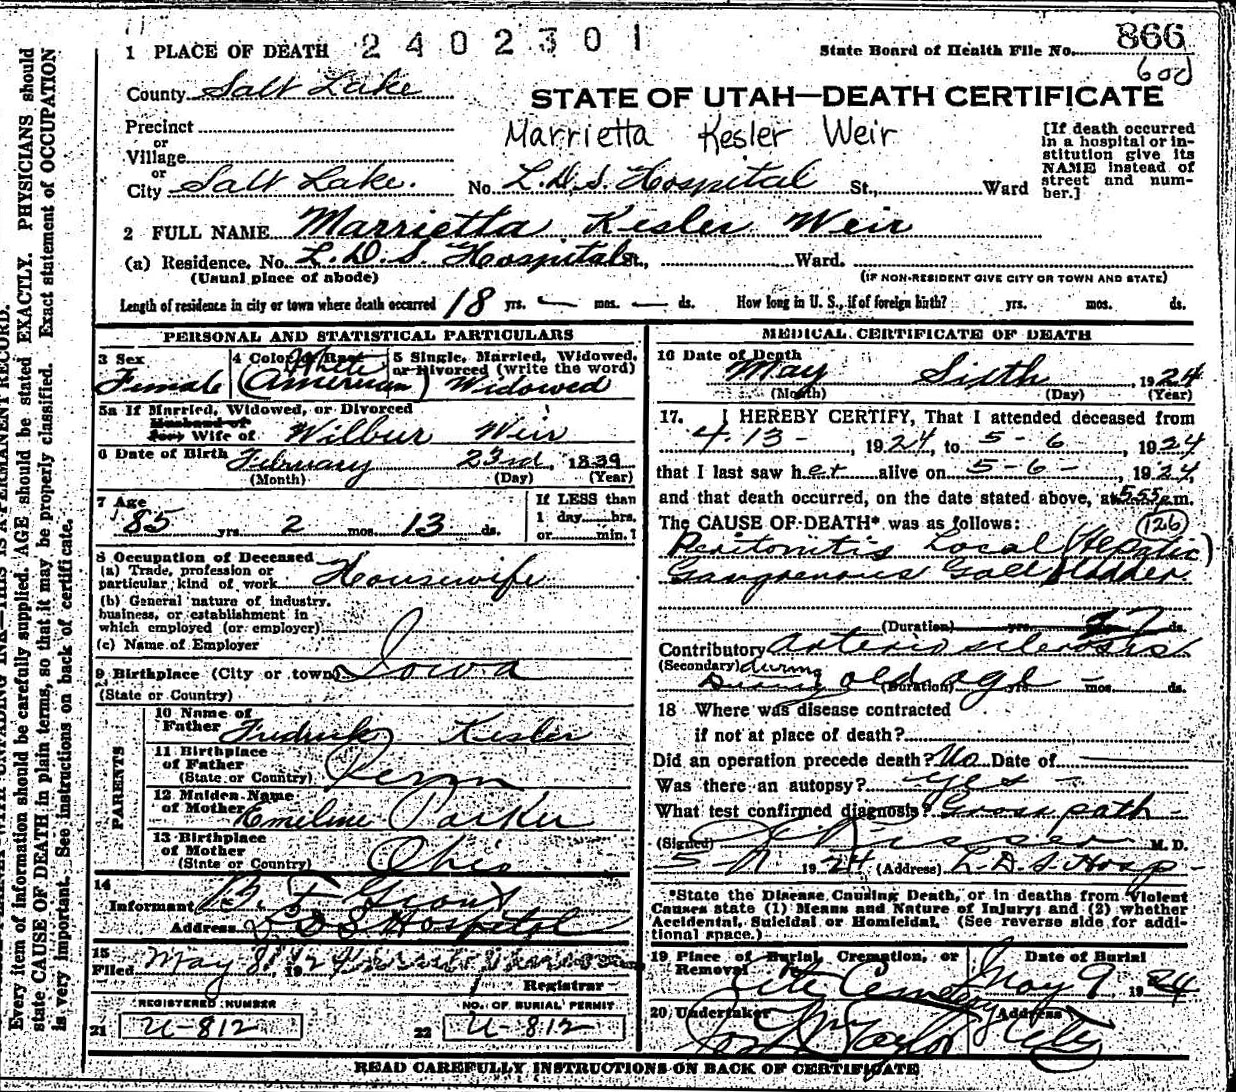 1 PLACE OF DEATH 2402301
State Board of Health File No. 866
60d
County Salt Lake
STATE OF UTAH—DEATH CERTIFICATE
Precinct
or
Village
or
City Salt Lake.
Marrietta Kesler Weir
No. L.D.S. Hospital St., Ward
[If death occurred
in a hospital or in-
stitution give its
NAME instead of
street and num-
ber.]
2 FULL NAME Marrietta Kesler Weir
(a) Residence. No. L.D.S. Hospital St., Ward.
(Usual place of abode)
(IF NON-RESIDENT GIVE CITY OR TOWN AND STATE)
Length of residence in city or town where death occurred 18 yrs. — mos. — ds. How long in U. S., if of foreign birth? yrs. mos. ds.
PERSONAL AND STATISTICAL PARTICULARS
3 Sex
Female
4 Color or Race
White
(American)
5 Single, Married, Widowed,
or Divorced (write the word)
Widowed
5a If Married, Widowed, or Divorced
Husband of
(or) Wife of Wilbur Weir
6 Date of Birth February 23rd, 1839
(Month) (Day) (Year)
7 Age
85 yrs. 2 mos. 13 ds.
If LESS than
1 day hrs.
or min.?
8 Occupation of Deceased
(a) Trade, profession or
particular kind of work Housewife
(b) General nature of industry.
business, or establishment in
which employed (or employer)
(c) Name of Employer
9 Birthplace (City or town) Iowa
(State or Country)
PARENTS
10 Name of
Father Fredrick Kesler
11 Birthplace
of Father
(State or Country) Penn
12 Maiden Name
of Mother Emeline Parker
13 Birthplace
of Mother
(State or Country) Ohio
14
Informant B. F. Grant
Address L D S Hospital
15
Filed May 8, 192
Registrar
REGISTERED NUMBER
21 U-812
NO. OF BURIAL PERMIT
22 U-812
MEDICAL CERTIFICATE OF DEATH
16 Date of Death
May Sixth, 1924
(Month) (Day) (Year)
17. I HEREBY CERTIFY, That I attended deceased from
4-13-, 1924, to 5-6, 1924
that I last saw her alive on 5-6-, 1924,
and that death occurred, on the date stated above, at 5:55 p.m.
The CAUSE OF DEATH* was as follows: 126
Peritonitis Local (Hepatic)
Gangrenous Gall Bladder.
(Duration) yrs. 27 ds.
Contributory Arterio sclerosis
(Secondary) during
During old age
(Duration) yrs. mos. ds.
18 Where was disease contracted
if not at place of death?
Did an operation precede death? No Date of
Was there an autopsy? yes -
What test confirmed diagnosis? Gross path -
(Signed) M. D.
5-7 1924 (Address) L.D.S. Hosp -
*State the Disease Causing Death, or in deaths from Violent
Causes state (1) Means and Nature of Injury; and (2) whether
Accidental, Suicidal or Homicidal. (See reverse side for addi-
tional space.)
19 Place of Burial, Cremation, or
Removal
City Cemetery
Date of Burial
May 9 1924
20 Undertaker
Jos Wm Taylor
Address
City
READ CAREFULLY INSTRUCTIONS ON BACK OF CERTIFICATE
Every item of information should be carefully supplied. AGE should be stated EXACTLY. PHYSICIANS should
state CAUSE OF DEATH in plain terms, so that it may be properly classified. Exact statement of OCCUPATION
is very important. See instructions on back of certificate.